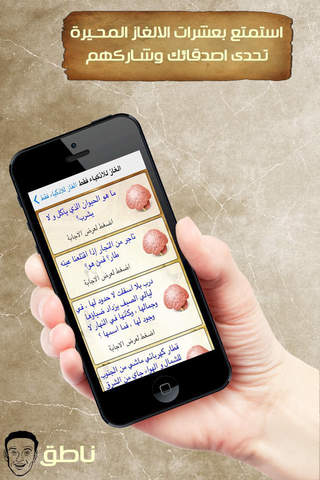 استمتع بعشرات الالغاز المحيرة
تحدى اصدقائك وشاركهم
الغاز للأذكياء فقط الغاز للأذكياء فقط
ما هو الحيوان الذي ياكل و لا
يشرب؟
اضغط لعرض الاجابة
تاجر من التجار إذا اقتلعنا عينه
طار؟ فمن هو؟
اضغط لعرض الاجابة
درب بلا أسفلت لا حدود لها . في
ليالي الصيف يزداد ضياؤها
وجمالها . ولكنها في النهار لا
وجود لها . فما اسمها ؟
اضغط لعرض الاجابة
قطار كهربائي ماشي من الجنوب
للشمال و الهواء جاي من الشرق
ناطق